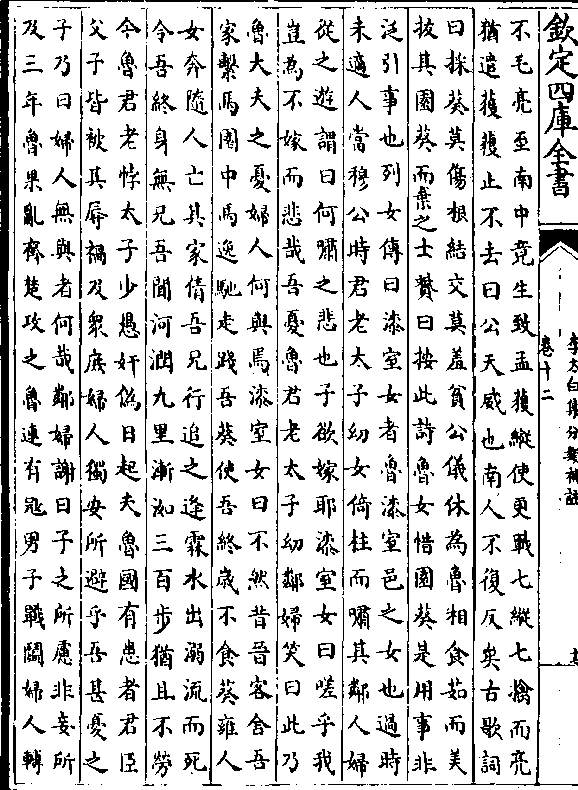 欽定四庫全書
李太白集分類補註
卷十二
不毛亮至南中竟生致孟獲縱使更戰七縱七擒而亮
猶遣獲獲止不去曰公天威也南人不復反矣古歌詞
曰採葵莫傷根結交莫羞貧公儀休為魯相食茹而美
拔其園葵而棄之士贇曰按此詩魯女惜園葵是用事非
泛引事也列女傳曰漆室女者魯漆室邑之女也過時
未適人當穆公時君老太子幼女倚柱而嘯其鄰人婦
從之遊謂曰何嘯之悲也子欲嫁耶漆室女曰嗟乎我
豈為不嫁而悲哉吾憂魯君老太子幼鄰婦笑曰此乃
魯大夫之憂婦人何與焉漆室女曰不然昔晉客舍吾
家繫馬園中馬逸馳走踐吾葵使吾終歲不食葵雍人
女奔隨人亡其家倩吾兄行追之逢霖水出溺流而死
令吾終身無兄吾聞河潤九里漸洳三百步猶且不勞
今魯君老悖太子少愚奸偽日起夫魯國有患者君臣
父子皆被其辱禍及衆庶婦人獨安所避乎吾甚憂之
子乃曰婦人無與者何哉鄰婦謝曰子之所慮非妾所
及三年魯果亂齊楚攻之魯連有㓂男子戰鬭婦人轉